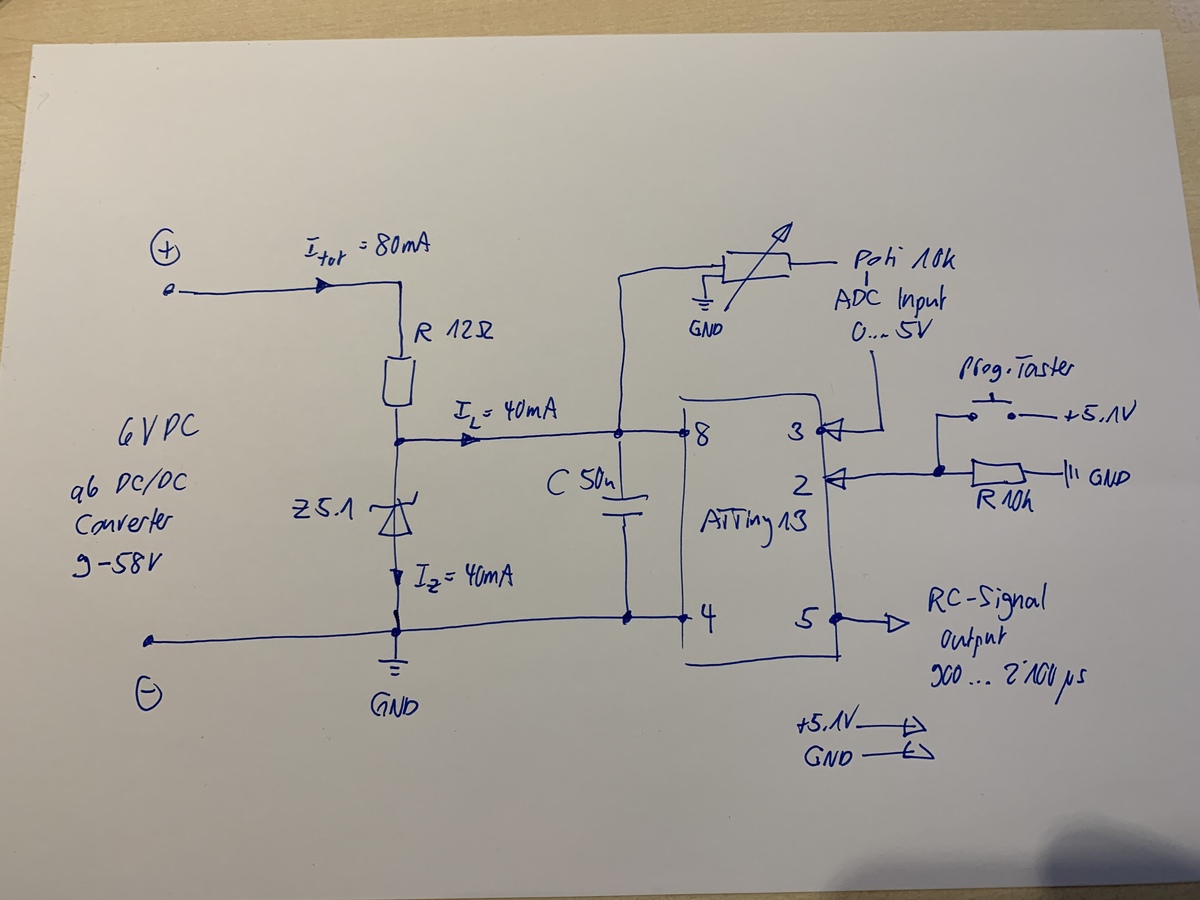 +
I tot = 80mA
R 12Ω
6VDC
ab DC/DC
Converter
9-58V
-
Z5.1
I_Z = 40mA
GND
I_L = 40mA
C 50n
GND
Poti 10k
ADC Input
0...5V
8
3
2
ATTiny13
4
5
Prog.Taster
+5.1V
R 10k
GND
RC-Signal
Output
900 ... 2'100 µs
+5.1V
GND